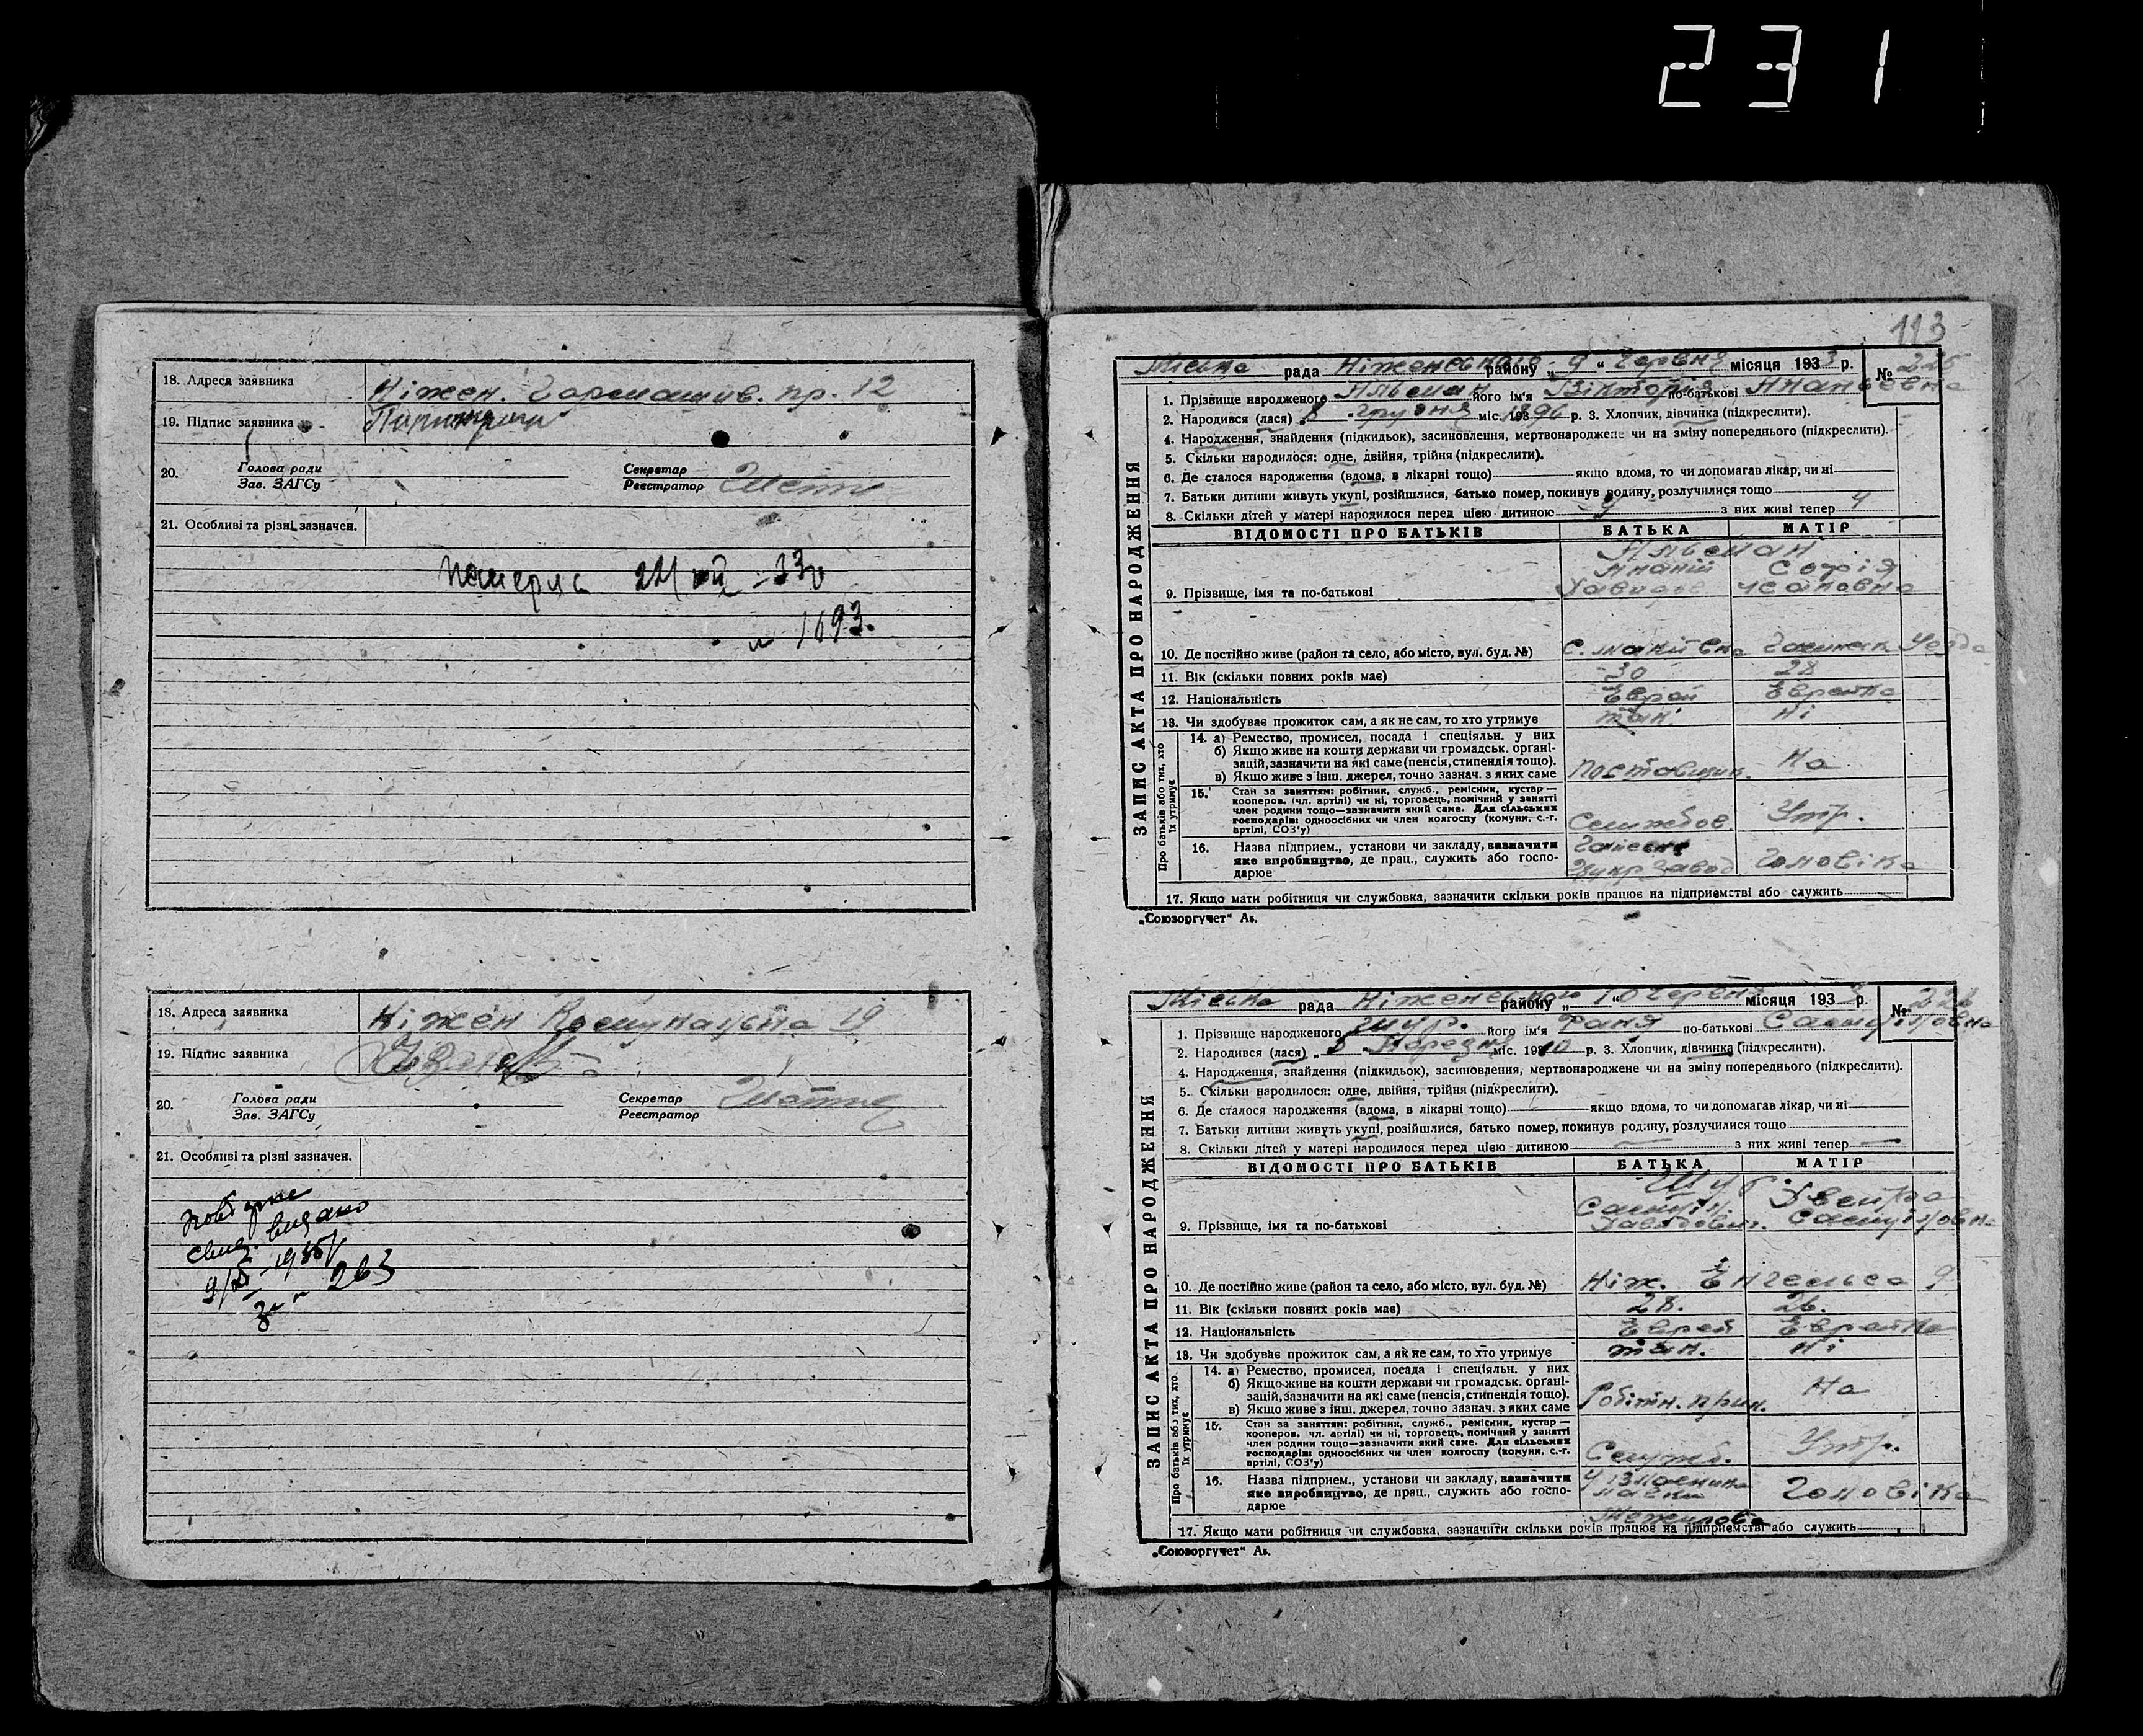 231
18. Адреса заявника Ніжен. пр. 12
19. Підпис заявника
20. Голова ради Секретар
Зав. ЗАГСу Реєстратор
21. Особливі та різні зазначен.
померла
№ 1693.
18. Адреса заявника Ніжен 19
19. Підпис заявника
20. Голова ради Секретар
Зав. ЗАГСу Реєстратор
21. Особливі та різні зазначен.
повторне
свид. видано
за № 263
113
Міська рада Ніженського району „ 9 “ червня місяця 1933 р. № 225
1. Прізвище народженого Альсман його ім'я Вікторія по-батькові Ананьевна
2. Народився (лася) 8 грудня міс. р. 3. Хлопчик, дівчинка (підкреслити).
4. Народження, знайдення (підкидьок), засиновлення, мертвонароджене чи на зміну попереднього (підкреслити).
5. Скільки народилося: одне, двійня, трійня (підкреслити).
6. Де сталося народження (вдома, в лікарні тощо) якщо вдома, то чи допомагав лікар, чи ні
7. Батьки дитини живуть укупі, розійшлися, батько помер, покинув родину, розлучилися тощо
8. Скільки дітей у матері народилося перед цією дитиною з них живі тепер
ЗАПИС АКТА ПРО НАРОДЖЕННЯ
ВІДОМОСТІ ПРО БАТЬКІВ БАТЬКА МАТІР
Альсман
Ананій Софія
9. Прізвище, імя та по-батькові
10. Де постійно живе (район та село, або місто, вул. буд. №)
11. Вік (скільки повних років має) 30 28
12. Національність Єврей Єврейка
13. Чи здобуває прожиток сам, а як не сам, то хто утримує так. ні
Про батьків або тих, хто їх утримує
14. а) Ремество, промисел, посада і спеціяльн. у них
б) Якщо живе на кошти держави чи громадськ. орґані-
зацій, зазначити на які саме (пенсія, стипендія тощо).
в) Якщо живе з інш. джерел, точно зазнач. з яких саме Поставщик. На
15. Стан за заняттям: робітник, служб., ремісник, кустар —
кооперов. (чл. артілі) чи ні, торговець, помічний у занятті
член родини тощо—зазначити який саме. Для сільських
господарів: одноосібних чи член колгоспу (комуни, с.-г.
артілі, СОЗ'у) Службов. Утр.
16. Назва підприєм., установи чи закладу, зазначити
яке виробництво, де прац., служить або госпо-
дарює Цукрзавод Чоловіка
17. Якщо мати робітниця чи службовка, зазначити скільки років працює на підприємстві або служить
„Союзоргучет“ Ак.
Міська рада Ніженського району „ 10 “ червня місяця 1933 р. №
1. Прізвище народженого Шур. його ім'я Фаня по-батькові Самуіловна
2. Народився (лася) „ 5 Березня міс. р. 3. Хлопчик, дівчинка (підкреслити).
4. Народження, знайдення (підкидьок), засиновлення, мертвонароджене чи на зміну попереднього (підкреслити).
5. Скільки народилося: одне, двійня, трійня (підкреслити).
6. Де сталося народження (вдома, в лікарні тощо) якщо вдома, то чи допомагав лікар, чи ні
7. Батьки дитини живуть укупі, розійшлися, батько помер, покинув родину, розлучилися тощо
8. Скільки дітей у матері народилося перед цією дитиною — з них живі тепер —
ЗАПИС АКТА ПРО НАРОДЖЕННЯ
ВІДОМОСТІ ПРО БАТЬКІВ БАТЬКА МАТІР
Шур.
Самуіл
9. Прізвище, імя та по-батькові Давидович. Самуіловна
10. Де постійно живе (район та село, або місто, вул. буд. №) Ніж. Енгельса 9
11. Вік (скільки повних років має) 28. 26.
12. Національність Єврей Єврейка
13. Чи здобуває прожиток сам, а як не сам, то хто утримує так. ні
Про батьків або тих, хто їх утримує
14. а) Ремество, промисел, посада і спеціяльн. у них
б) Якщо живе на кошти держави чи громадськ. орґані-
зацій, зазначити на які саме (пенсія, стипендія тощо).
в) Якщо живе з інш. джерел, точно зазнач. з яких саме Робітн. прил. На
15. Стан за заняттям: робітник, служб., ремісник, кустар —
кооперов. чл. артілі) чи ні, торговець, помічний у занятті
член родини тощо—зазначити який саме. Для сільських
господарів: одноосібних чи член колгоспу (комуни, с.-г.
артілі, СОЗ'у) Служб. Утр.
16. Назва підприєм., установи чи закладу, зазначити
яке виробництво, де прац., служить або госпо-
дарює Чоловіка
17. Якщо мати робітниця чи службовка, зазначити скільки років працює на підприємстві або служить
„Союзоргучет“ Ак.